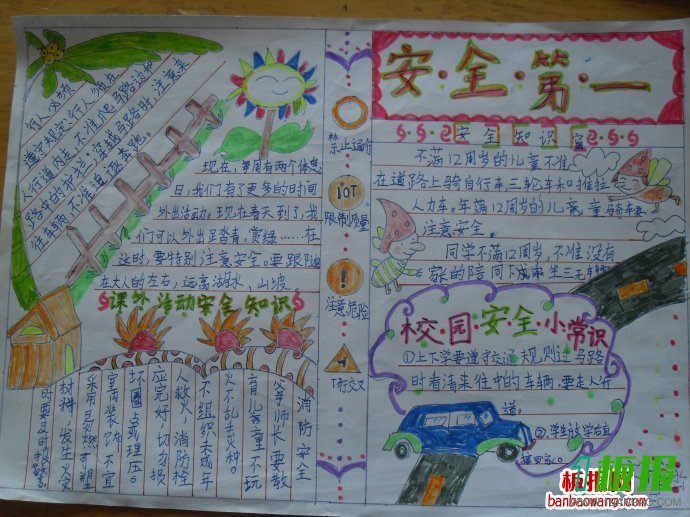 安·全·第·一
安全知识窗
不满12周岁的儿童不准
在道路上骑自行车三轮车和推拉
人力车。年满12周岁的儿童骑车要
注意安全。
同学不满12周岁,不准没有
家的陪同下
校园安全小常识
①上下学要遵守交通规则过马路
时看清来往中的车辆,要走人行
道。
②学生放学后直
接回家。
禁止通行
10T
限制质量
!
注意危险
T行交叉
行人必须
遵守规定:行人须在
人行道内走,不准爬马路边和
路中的护栏,穿越马路时,注意来
往车辆,不准追逐奔跑。
现在,每周有两个休息
日,我们有了更多的时间
外出活动。现在春天到了,我
们可以外出踏青,赏绿……在
这时,要特别注意安全。要跟随
在大人的左右,远离湖水,山坡
课外活动安全知识
消防安全
父母师长要教
育儿童不玩
火不乱丢火种。
不组织未成年
人救火,消防栓
应完好,切勿损
坏圈占或埋压。
室内装饰不宜
采用易燃可塑
材料,发生火灾
时要及时报警
板报
板报网
banbaowang.com